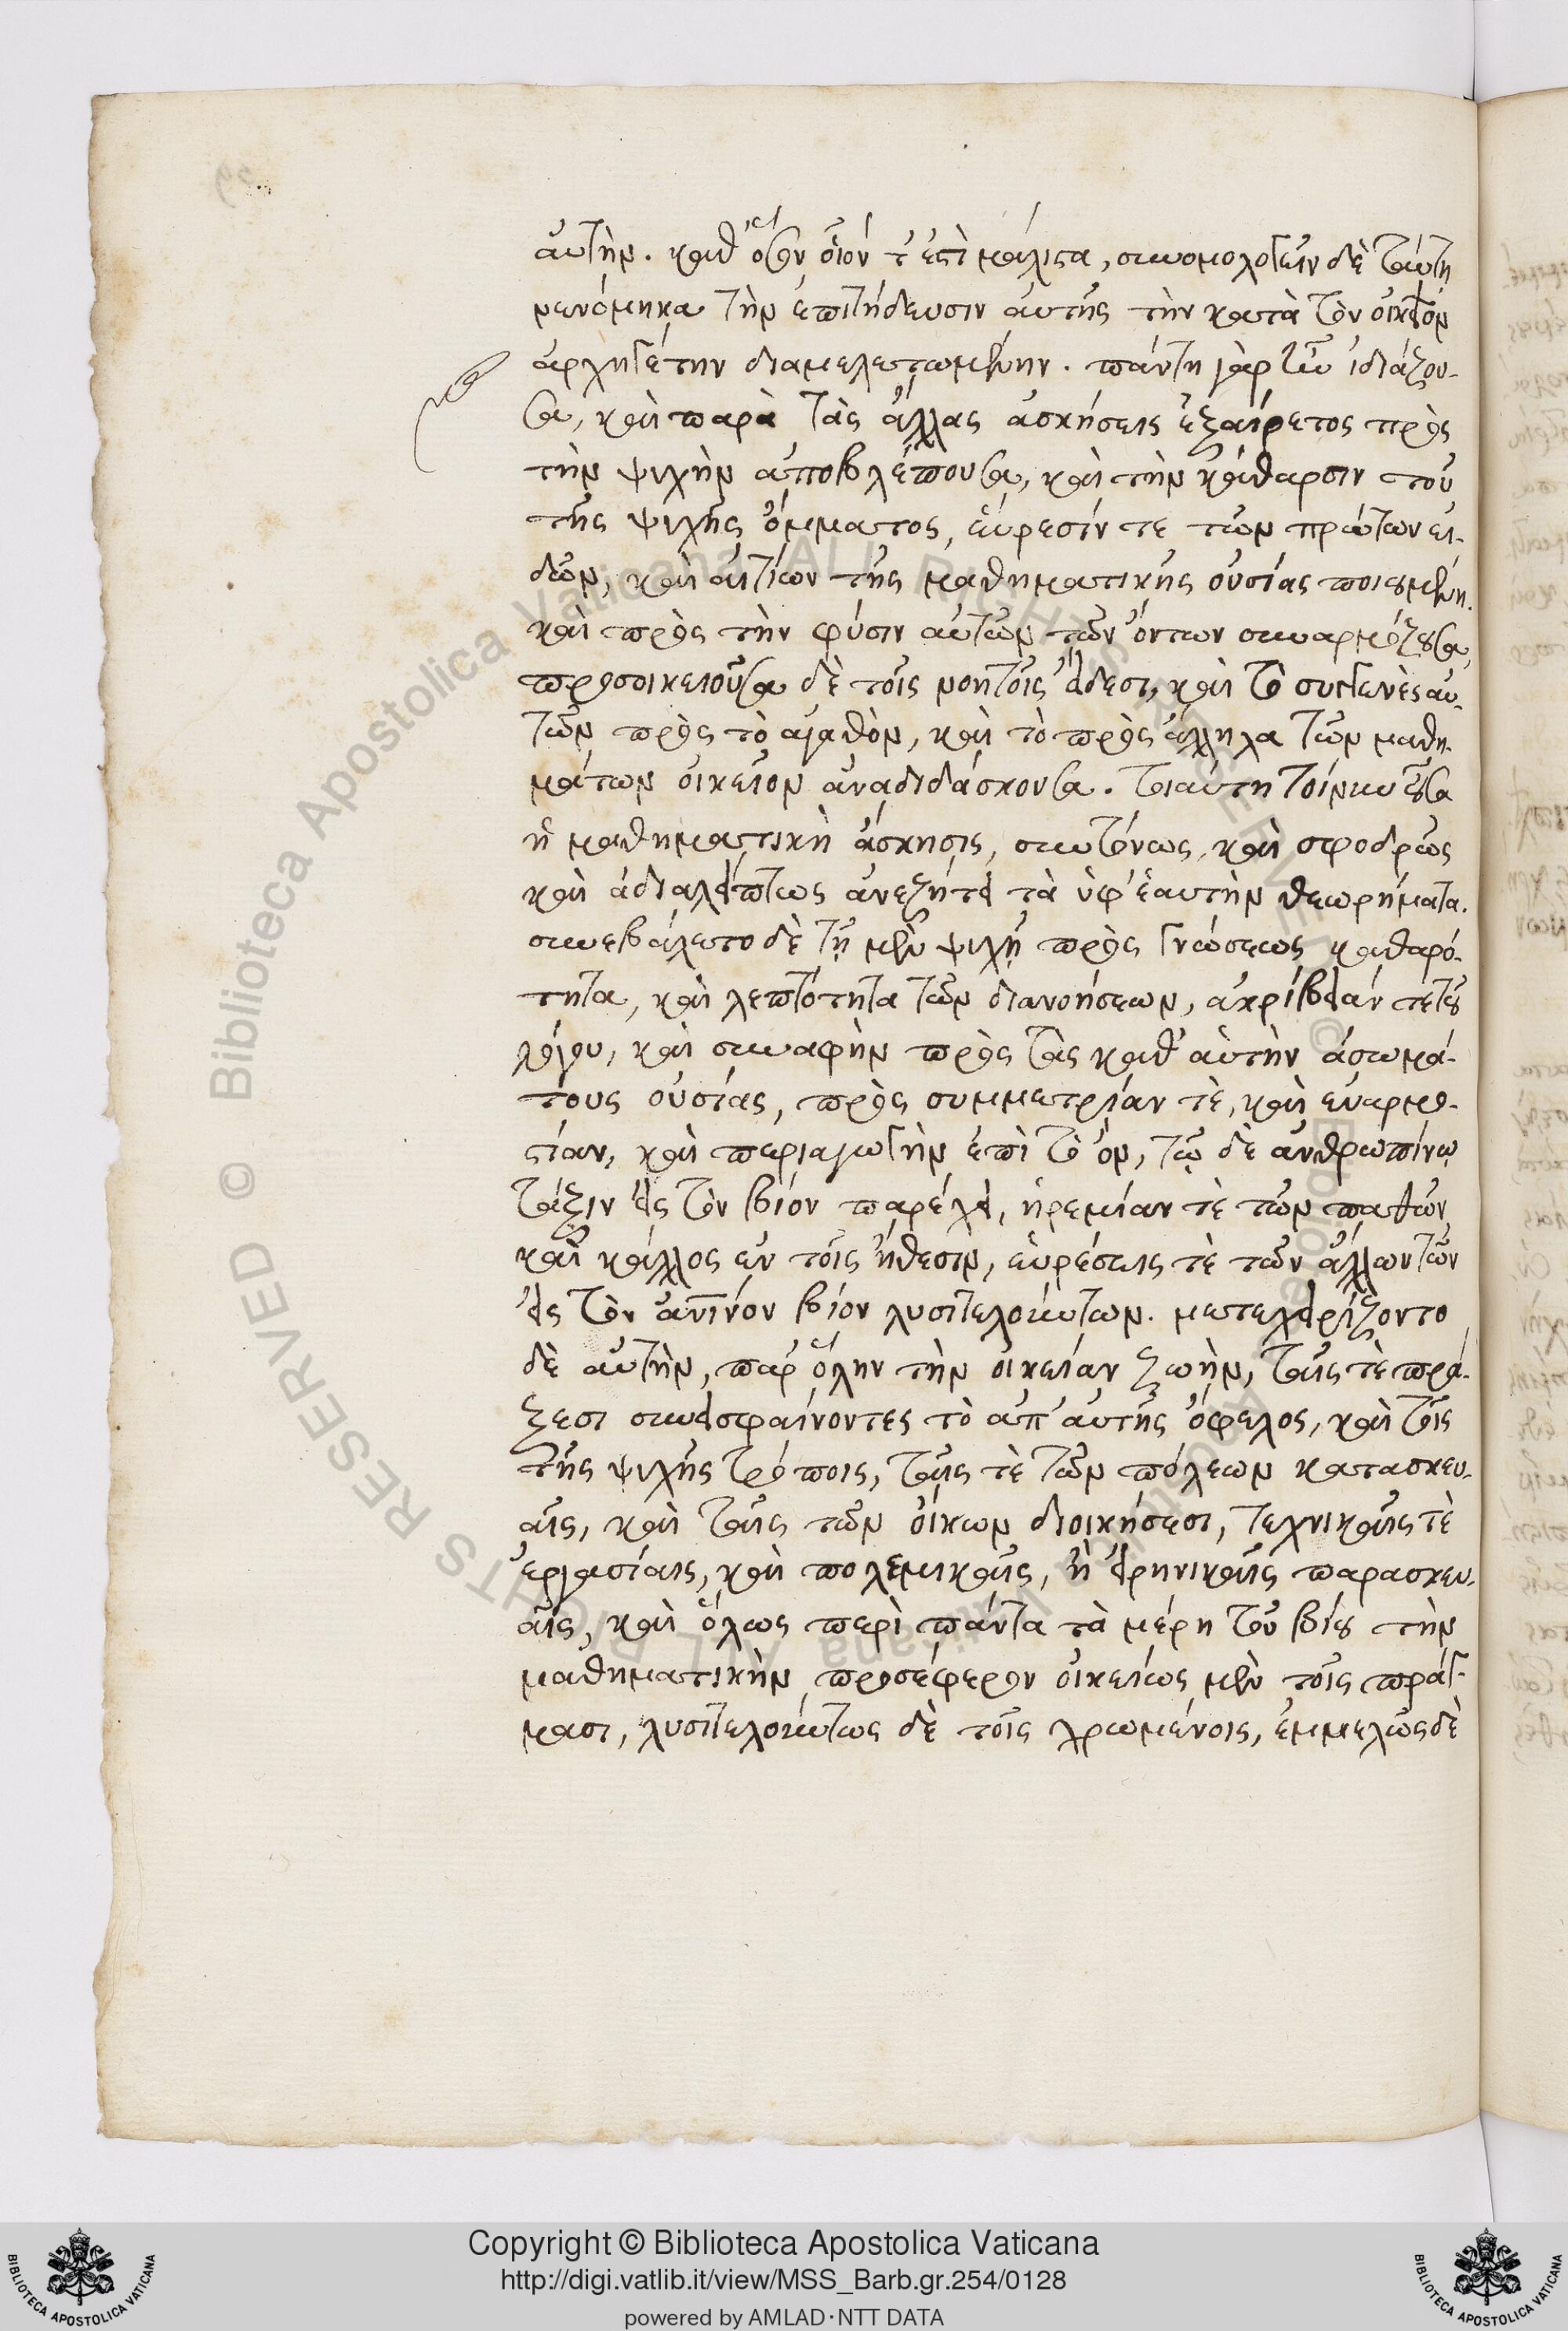 αὐτὴν. καθ' ὅσον οἷόν τ' ἐστὶ μάλιστα, συνομολογεῖν δὲ ταύτῃ
νενόμηκα τὴν ἐπιτήδευσιν αὐτῆς τὴν κατὰ τὸν οἰκεῖον
ἀρχηγέτην διαμελετωμένην. πάντη γὰρ ἦν ἰδιάζου-
σα, καὶ παρὰ τὰς ἄλλας ἀσκήσεις ἐξαίρετος πρὸς
τὴν ψυχὴν ἀποβλέπουσα, καὶ τὴν κάθαρσιν τοῦ
τῆς ψυχῆς ὄμματος, εὕρεσίν τε τῶν πρώτων εἰ-
δῶν, καὶ αἰτίων τῆς μαθηματικῆς οὐσίας ποιουμένη.
καὶ πρὸς τὴν φύσιν αὐτῶν τῶν ὄντων συναρμόζουσα,
προσοικειοῦσα δὲ τοῖς νοητοῖς εἴδεσι, καὶ τὸ συγγενὲς αὐ-
τῶν πρὸς τὸ ἀγαθὸν, καὶ τὸ πρὸς ἄλληλα τῶν μαθη-
μάτων οἰκεῖον ἀναδιδάσκουσα. τοιαύτη τοίνυν οὖσα
ἡ μαθηματικὴ ἄσκησις, συντόνως, καὶ σφοδρῶς
καὶ ἀδιαλείπτως ἀνεζήτει τὰ ὑφ' ἑαυτὴν θεωρήματα.
συνεβάλετο δὲ τῇ μὲν ψυχῇ πρὸς γνώσεως καθαρό-
τητα, καὶ λεπτότητα τῶν διανοήσεων, ἀκρίβειάν τε τοῦ
λόγου, καὶ συναφὴν πρὸς τὰς καθ' αὑτὴν ἀσωμά-
τους οὐσίας, πρὸς συμμετρίαν τὲ, καὶ εὐαρμο-
στίαν, καὶ περιαγωγὴν ἐπὶ τὸ ὄν, τῷ δὲ ἀνθρωπίνῳ
τάξιν εἰς τὸν βίον παρέχει, ἠρεμίαν τὲ τῶν παθῶν
καὶ κάλλος ἐν τοῖς ἤθεσιν, εὑρέσεις τὲ τῶν ἄλλων τῶν
εἰς τὸν ἀνινον βίον λυσιτελούντων. μετεχειρίζοντο
δὲ αὐτὴν, παρ' ὅλην τὴν οἰκείαν ζωὴν, ταῖς τὲ πρά-
ξεσι συνεισφαίνοντες τὸ ἀπ' αὐτῆς ὄφελος, καὶ τοῖς
τῆς ψυχῆς τρόποις, ταῖς τὲ τῶν πόλεων κατασκευ-
αῖς, καὶ ταῖς τῶν οἴκων διοικήσεσι, τεχνικαῖς τὲ
ἐργασίαις, καὶ πολεμικαῖς, ἢ εἰρηνικαῖς παρασκευ-
αῖς, καὶ ὅλως περὶ πάντα τὰ μέρη τοῦ βίου τὴν
μαθηματικὴν προσέφερον οἰκείως μὲν τοῖς πράγ-
μασι, λυσιτελούντως δὲ τοῖς χρωμένοις, ἐμμελῶς δὲ
© Biblioteca Apostolica Vaticana ALL RIGHTS RESERVED
Copyright © Biblioteca Apostolica Vaticana
http://digi.vatlib.it/view/MSS_Barb.gr.254/0128
powered by AMLAD·NTT DATA
BIBLIOTECA APOSTOLICA VATICANA
BIBLIOTECA APOSTOLICA VATICANA